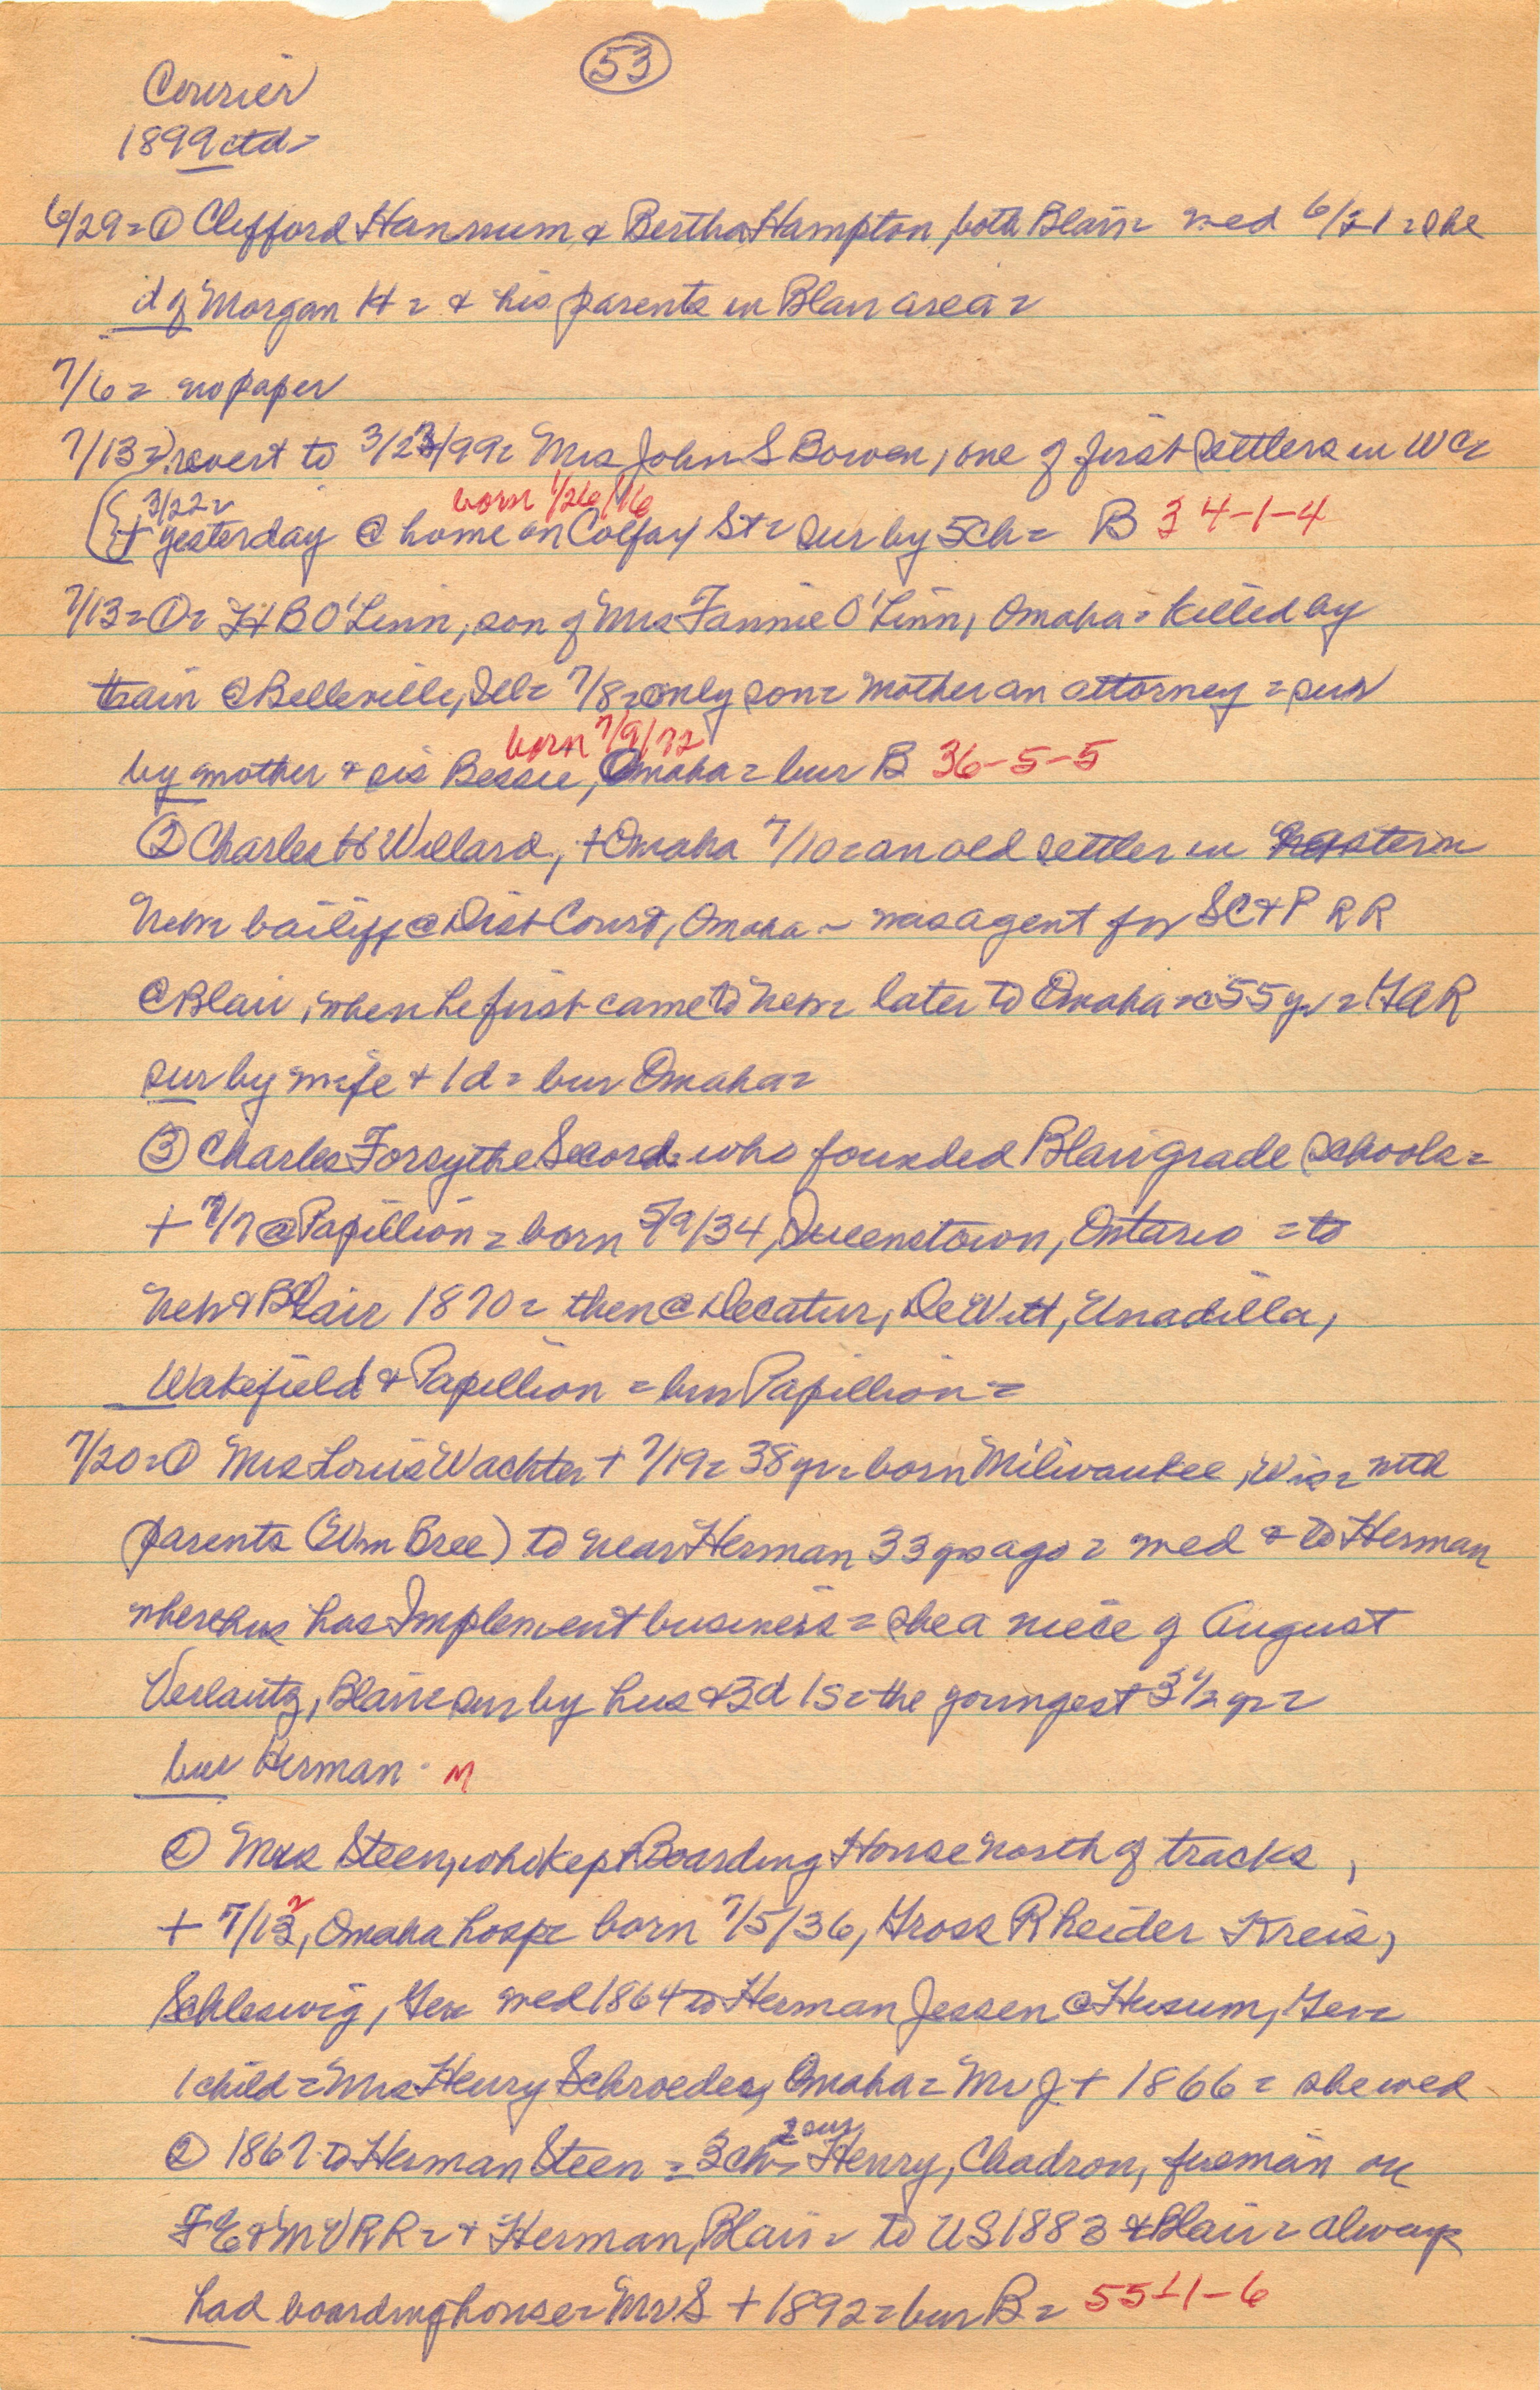 53
Courier
1899 ctd=
6/29= ① Clifford Hannum & Bertha Hampton, both Blair= wed 6/21= she
d of Morgan H= & his parents in Blair area=
7/6= no paper
7/13= revert to 3/23/99= Mrs John S Bowen, one of first settlers in WC=
3/22= born 1/26/16
+ yesterday @ home on Colfax St= sur by 5ch= B 34-1-4
7/13= ①= H B O'Linn, son of Mrs Fannie O'Linn, Omaha= killed by
train @ Belleville, Ill= 7/8= only son= mother an attorney= sur
born 7/9/72
by mother & sis Bessie, Omaha= bur B 36-5-5
② Charles H Willard, + Omaha 7/10= an old settler in eastern
Neb= bailiff @ Dist Court, Omaha - was agent for SC&P RR
@ Blair, when he first came to Neb= later to Omaha= c 55 yr= GAR
sur by wife & 1d= bur Omaha=
③ Charles Forsythe Secord= who founded Blair grade schools=
+ 7/7 @ Papillion= born 5/9/34, Queenstown, Ontario = to
Neb & Blair 1870= then @ Decatur, DeWitt, Unadilla,
Wakefield & Papillion = bur Papillion=
7/20= ① Mrs Louis Wachter + 7/19= 38 yr= born Milwaukee, Wis= with
parents (Wm Bree) to near Herman 33 yrs ago= wed & to Herman
where hus has Implement business= she a niece of August
Blair= sur by hus & 3d 1s= the youngest 3 1/2 yr=
bur Herman - M
② Mrs Steen, who kept Boarding House north of tracks,
+ 7/12, Omaha hosp= born 7/5/36, Gross Rheider Kreis,
Schleswig, Ger= wed 1864 to Herman Jessen @ Husum, Ger=
1 child= Mrs Henry Schroeder, Omaha= Mr J + 1866= she wed
2 sur
② 1867 to Herman Steen= 3 ch= Henry, Chadron, fireman on
FE&MVRR= & Herman, Blair= to US 1883 & Blair= always
had boarding house= Mr S + 1892= bur B= 55-1-6